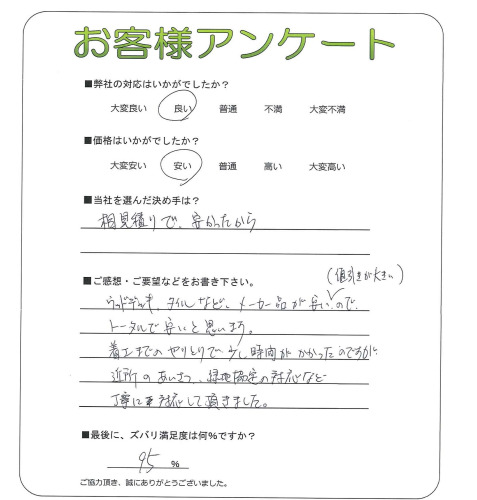 お客様アンケート
■弊社の対応はいかがでしたか？
大変良い 良い 普通 不満 大変不満
■価格はいかがでしたか？
大変安い 安い 普通 高い 大変高い
■当社を選んだ決め手は？
相見積りで、安かったから
■ご感想・ご要望などをお書き下さい。
(値引きが大きい)
ウッドデッキ、タイルなど、メーカー品が安いので、
トータルで安いと思います。
着工までのやりとりで少し時間がかかったのですが
近所のあいさつ、緑地協定の対応など
丁寧に対応して頂きました。
■最後に、ズバリ満足度は何％ですか？
95 %
ご協力頂き、誠にありがとうございました。